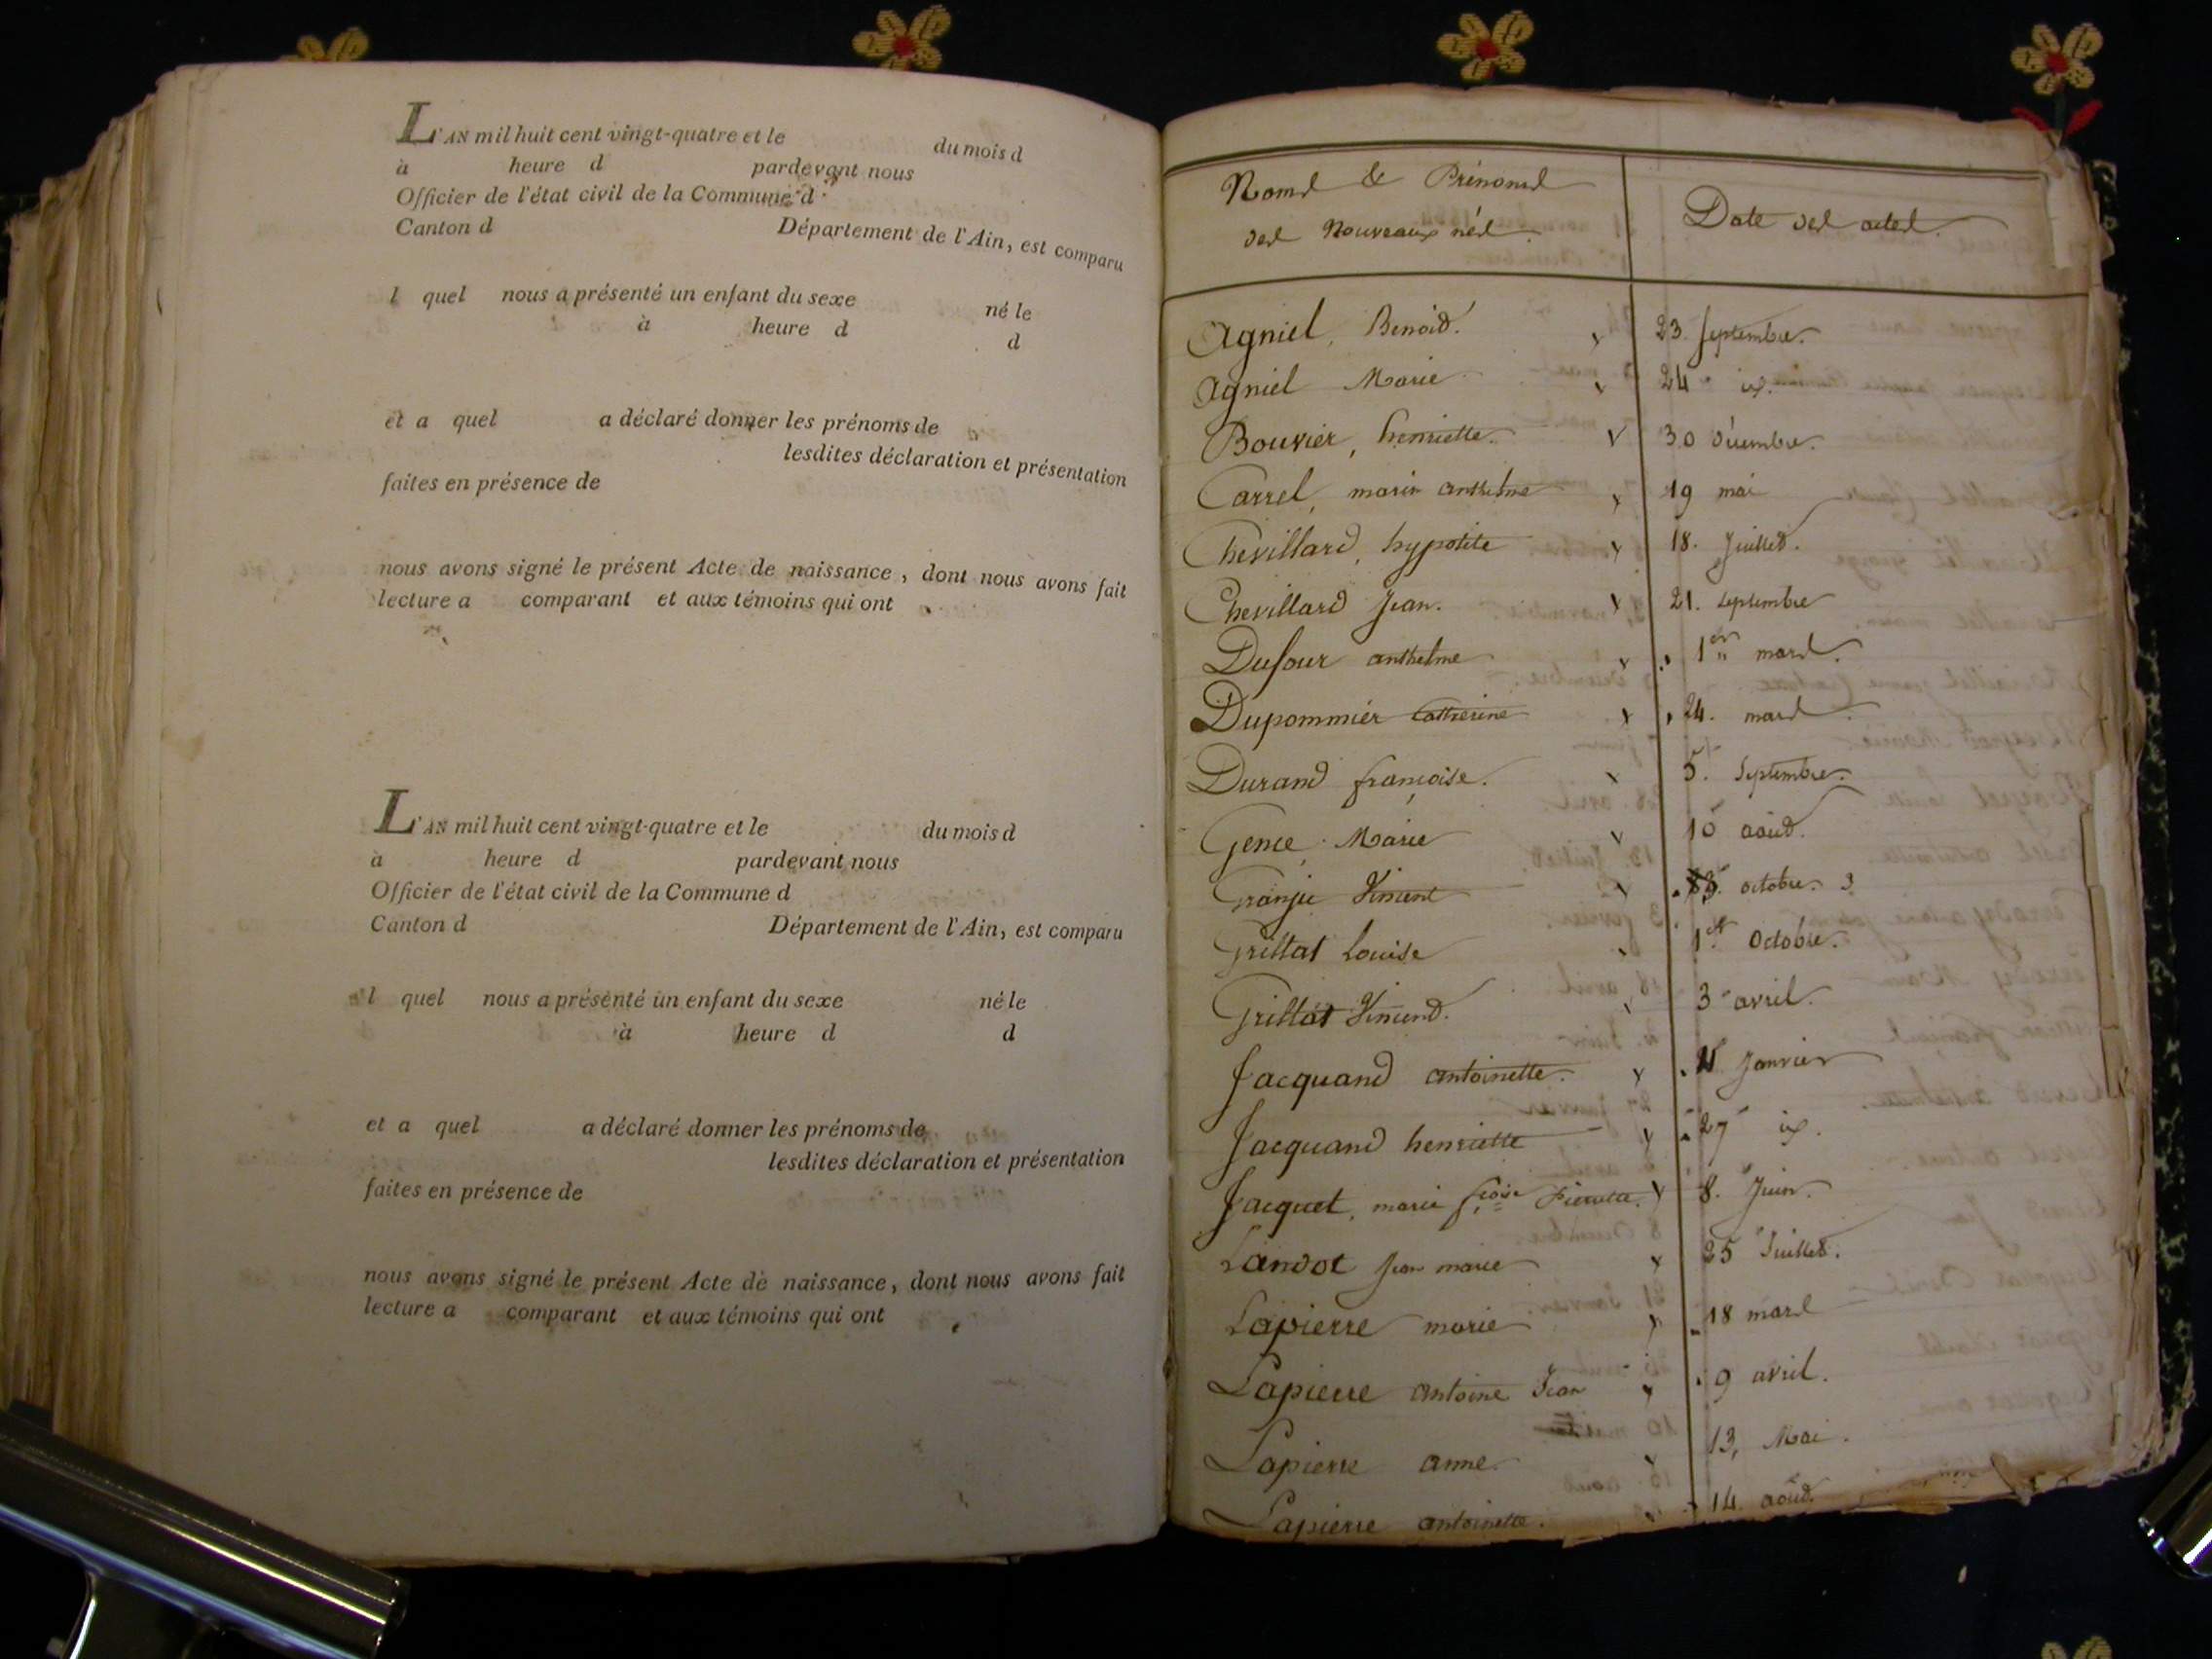 L'AN mil huit cent vingt-quatre et le du mois d
à heure d pardevant nous
Officier de l'état civil de la Commune d
Canton d Département de l'Ain, est comparu
l quel nous a présenté un enfant du sexe né le
à heure d d
et a quel a déclaré donner les prénoms de
lesdites déclaration et présentation
faites en présence de
nous avons signé le présent Acte de naissance, dont nous avons fait
lecture a comparant et aux témoins qui ont
L'AN mil huit cent vingt-quatre et le du mois d
à heure d pardevant nous
Officier de l'état civil de la Commune d
Canton d Département de l'Ain, est comparu
l quel nous a présenté un enfant du sexe né le
à heure d d
et a quel a déclaré donner les prénoms de
lesdites déclaration et présentation
faites en présence de
nous avons signé le présent Acte de naissance, dont nous avons fait
lecture a comparant et aux témoins qui ont
Noms & Prénoms
des Nouveaux nés.
Date des actes.
Agniel, Benoit. 23. Septembre.
Agniel Marie 24
Bouvier, henriette. 30 Décembre.
Carrel, marin anthelme 19 mai
Chevillard, hypolite 18. Juillet.
Chevillard Jean. 21. Septembre
Dufour anthelme 1er mars.
Dupommier Catherine 24. mars.
Durand françoise. 5. Septembre.
Gence, Marie 10 août.
Granju Vincent octobre. 3
Grillat Louise 1er Octobre.
Grillat Vincent. 3 avril.
Jacquand antoinette. Janvier
Jacquand henriette 27
Jacquet, marie fçoise Pierrette. 8. Juin.
Landot Jean marie 25 Juillet.
Lapierre marie 18 mars
Lapierre antoine Jean 9 avril.
Lapierre anne. 13, Mai.
Lapierre antoinette. 14. août.